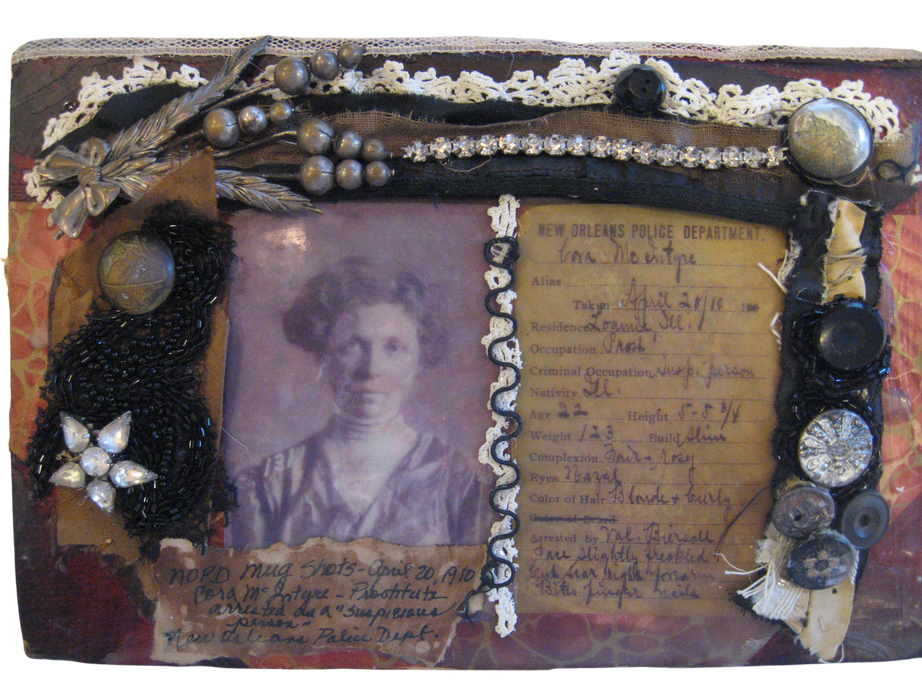 NEW ORLEANS POLICE DEPARTMENT.
Cora McIntyre
Alias
Taken April 20/10 190
Residence Ill.
Occupation Prost
Criminal Occupation Susp. person
Nativity Ill.
Age 22 Height 5-5 3/4
Weight 123 Build Slim
Complexion Fair + rosy
Eyes Hazel
Color of Hair Blonde + Curly
Color of Beard
Arrested by Val. Biersoll
Face slightly freckled
Cut scar right forearm
Bites finger nails
NOPD Mug Shots - April 20, 1910
Cora McIntyre - Prostitute
arrested as a "suspicious
person"
New Orleans Police Dept.